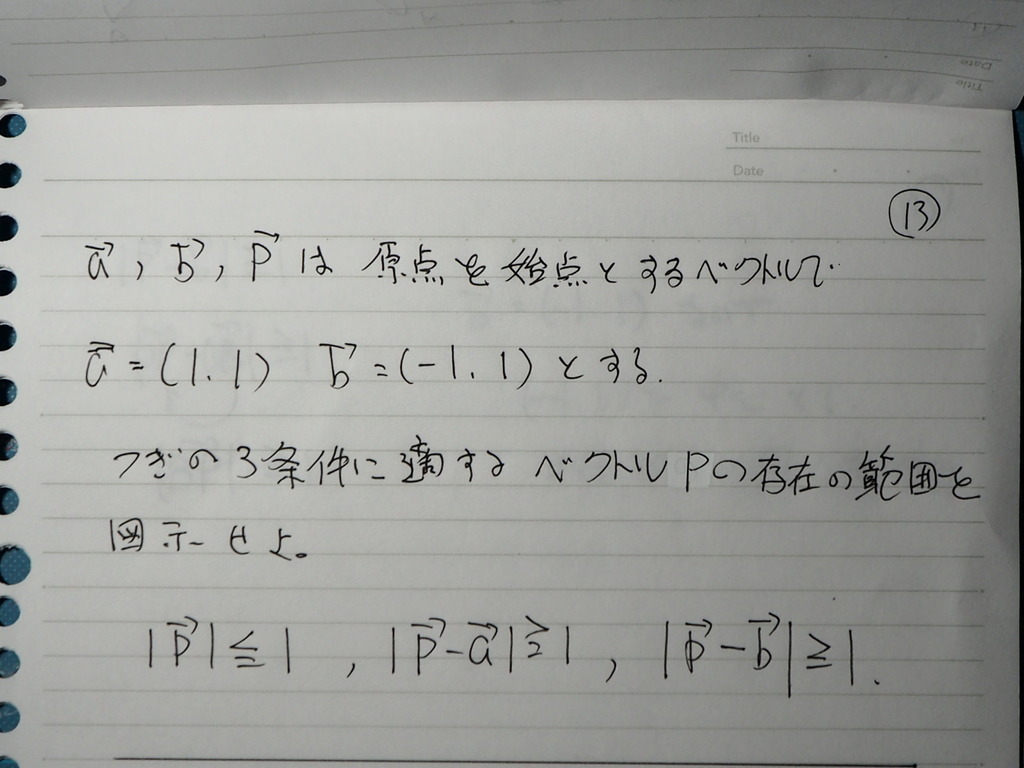 Title
Date
⑬
a⃗, b⃗, p⃗ は 原点を始点とするベクトルで
a⃗ = (1.1) b⃗ = (-1.1) とする.
つぎの3条件に適するベクトルPの存在の範囲を
図示せよ。
|p⃗| ≦ 1 , |p⃗-a⃗| ≧ 1 , |p⃗-b⃗| ≧ 1.